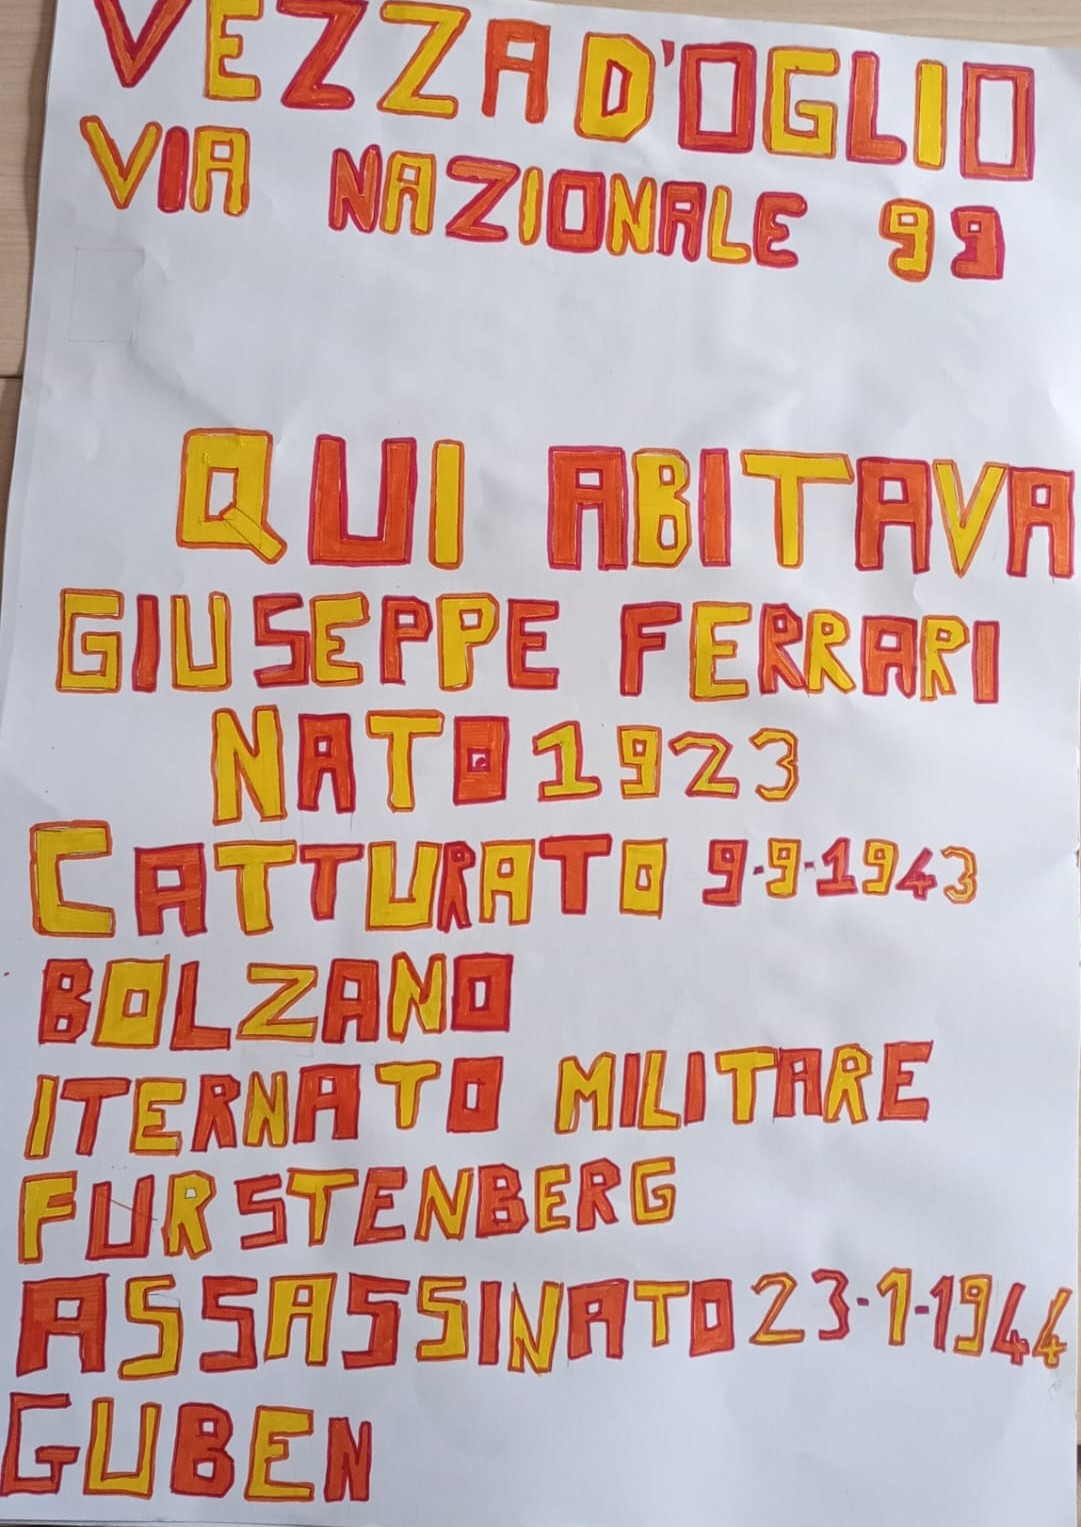 VEZZA D'OGLIO
VIA NAZIONALE 99
QUI ABITAVA
GIUSEPPE FERRARI
NATO 1923
CATTURATO 9-9-1943
BOLZANO
ITERNATO MILITARE
FURSTENBERG
ASSASSINATO 23-1-1944
GUBEN